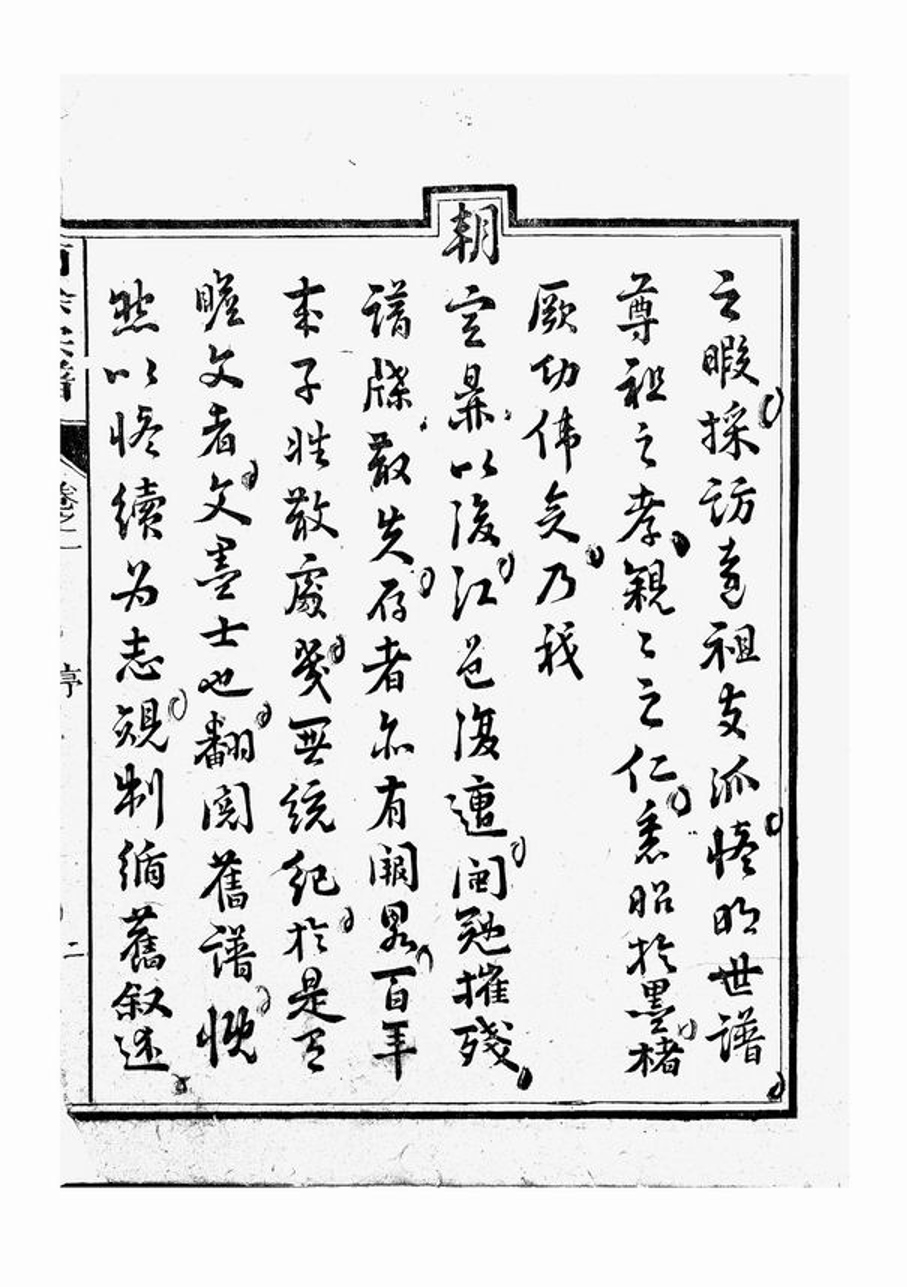 之暇採訪遠祖支派修明世譜
尊祖之孝親〻之仁悉昭於墨楮
厥功偉矣乃我
朝定鼎以後江邑復遭閩逆摧殘
譜牒散失存者亦有闕畧百年
來子姓散處箋無統紀於是有
瞻文者文墨士也翻閱舊譜慨
然以修續为志規制循舊叙述
卷之一
序
二